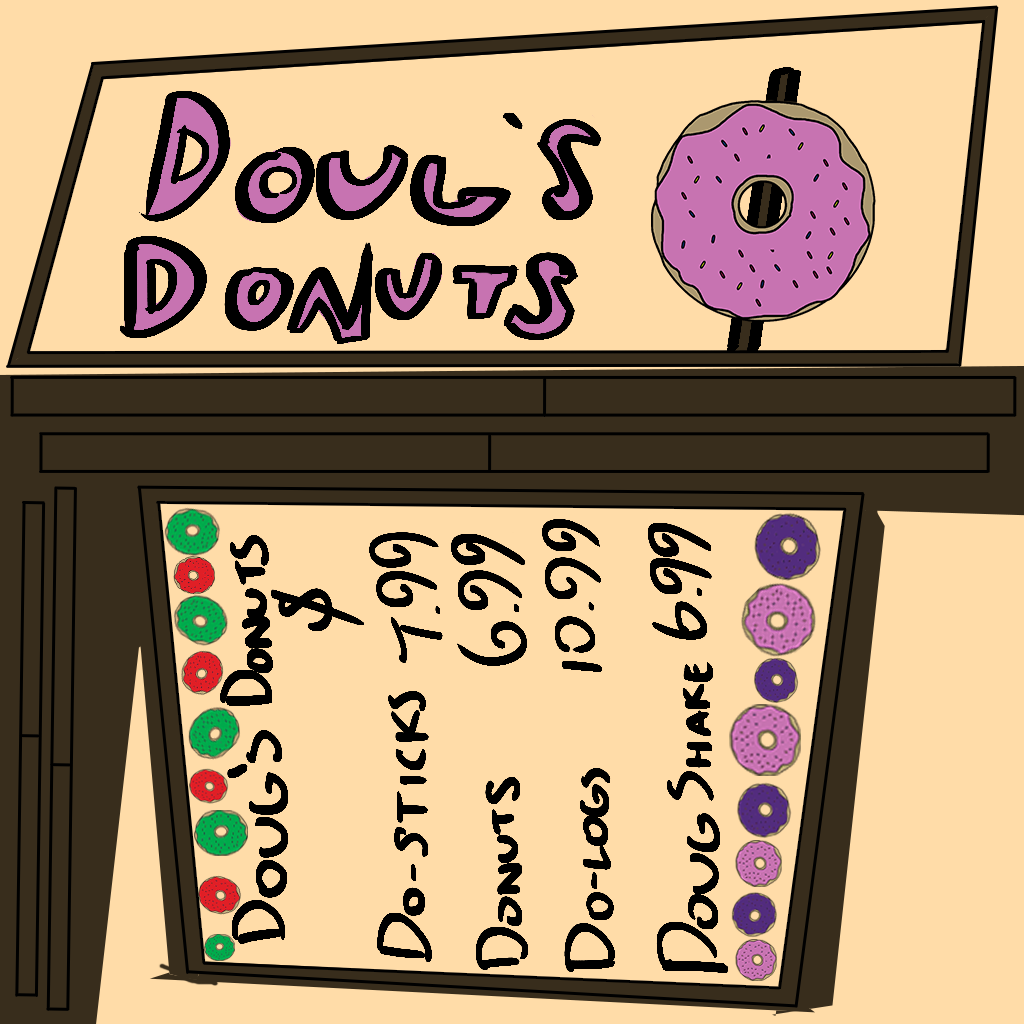 DOUG'S
DONUTS
DOUG'S DONUTS
$
DO-STICKS 7.99
DONUTS 6.99
DO-LOGS 10.99
DOUG SHARE 6.99